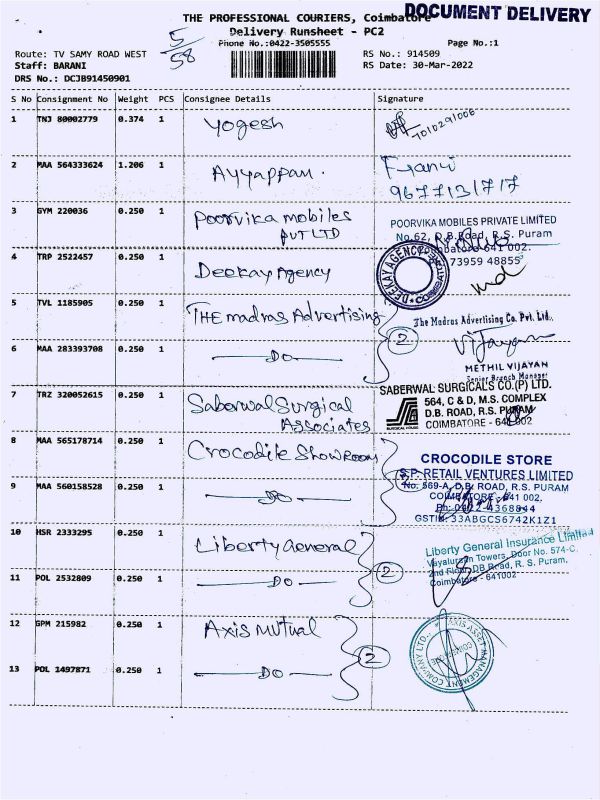 THE PROFESSIONAL COURIERS, Coimbatore
DOCUMENT DELIVERY
Delivery Runsheet - PC2
5/58
Phone No.:0422-3505555
Page No.:1
Route: TV SAMY ROAD WEST
RS No.: 914509
Staff: BARANI
RS Date: 30-Mar-2022
DRS No.: DCJB91450901
S No Consignment No Weight PCS Consignee Details Signature
1 TNJ 80002779 0.374 1 Yogesh
7010291006
2 MAA 564333624 1.206 1 Ayyappan.
9677131717
3 GYM 220036 0.250 1 Poorvika mobiles
PVT LTD
POORVIKA MOBILES PRIVATE LIMITED
No.62, D.B.Road, R.S. Puram
Coimbatore-641 002.
73959 48855
4 TRP 2522457 0.250 1 Deekay Agency
DEEKAY AGENCY
COIMBATORE
5 TVL 1185905 0.250 1 THE madras Advertising
2
The Madras Advertising Co. Pvt. Ltd.,
Vijayan
6 MAA 283393708 0.250 1 DO
METHIL VIJAYAN
Senior Branch Manager
7 TRZ 320052615 0.250 1 Saberwal Surgical
Associates
SABERWAL SURGICALS CO.(P) LTD.
564, C & D, M.S. COMPLEX
D.B. ROAD, R.S. PURAM
COIMBATORE - 641 002
8 MAA 565178714 0.250 1 Crocodile Showroom
CROCODILE STORE
S.P. RETAIL VENTURES LIMITED
9 MAA 560158528 0.250 1 DO
No. 569-A, D.B. ROAD, R.S. PURAM
COIMBATORE - 641 002,
Ph: 0422-4368844
GSTIN: 33ABGCS6742K1Z1
10 HSR 2333295 0.250 1 Liberty General
Liberty General Insurance Limited
Vayaluraan Towers, Door No. 574-C,
2nd Floor, DB Road, R. S. Puram,
Coimbatore - 641002
11 POL 2532809 0.250 1 DO
2
12 GPM 215982 0.250 1 Axis Mutual
2
AXIS ASSET MANAGEMENT COMPANY LTD.,
COIMBATORE
13 POL 1497871 0.250 1 DO